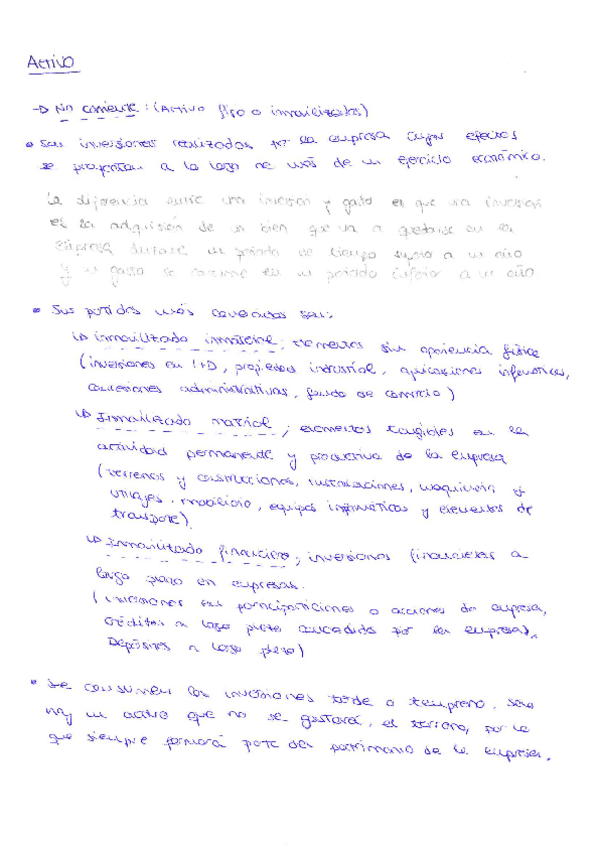 Activo
→ No corriente: (Activo fijo o inmovilizado)
• Son inversiones realizadas por la empresa cuyos efectos
se proyectan a lo largo de más de un ejercicio económico.
La diferencia entre una inversion y gasto es que una inversion
es la adquisión de un bien que va a quedarse en la
empresa durante un periodo de tiempo superior a un año
Y un gasto se consume en un periodo inferior a un año
• Sus partidas más conocidas son:
↳ Inmovilizado inmaterial; elementos sin apariencia física
(inversiones en I+D, propiedad industrial, aplicaciones informáticas,
concesiones administrativas, fondo de comercio)
↳ Inmovilizado material; elementos tangibles en la
actividad permanente y productiva de la empresa
(terrenos y construcciones, instalaciones, maquinaria
utillajes, mobiliario, equipos informáticos y elementos de
transporte)
↳ Inmovilizado financiero; inversiones financieras a
largo plazo en empresas.
(inversiones en participaciciones o acciones de empresa,
créditos a largo plazo concedido por la empresa,
Depósitos a largo plazo)
• Se consumen las inversiones tarde o temprano. Solo
hay un activo que no se gastará, el terreno, por lo
que siempre formará parte del patrimonio de la empresa.